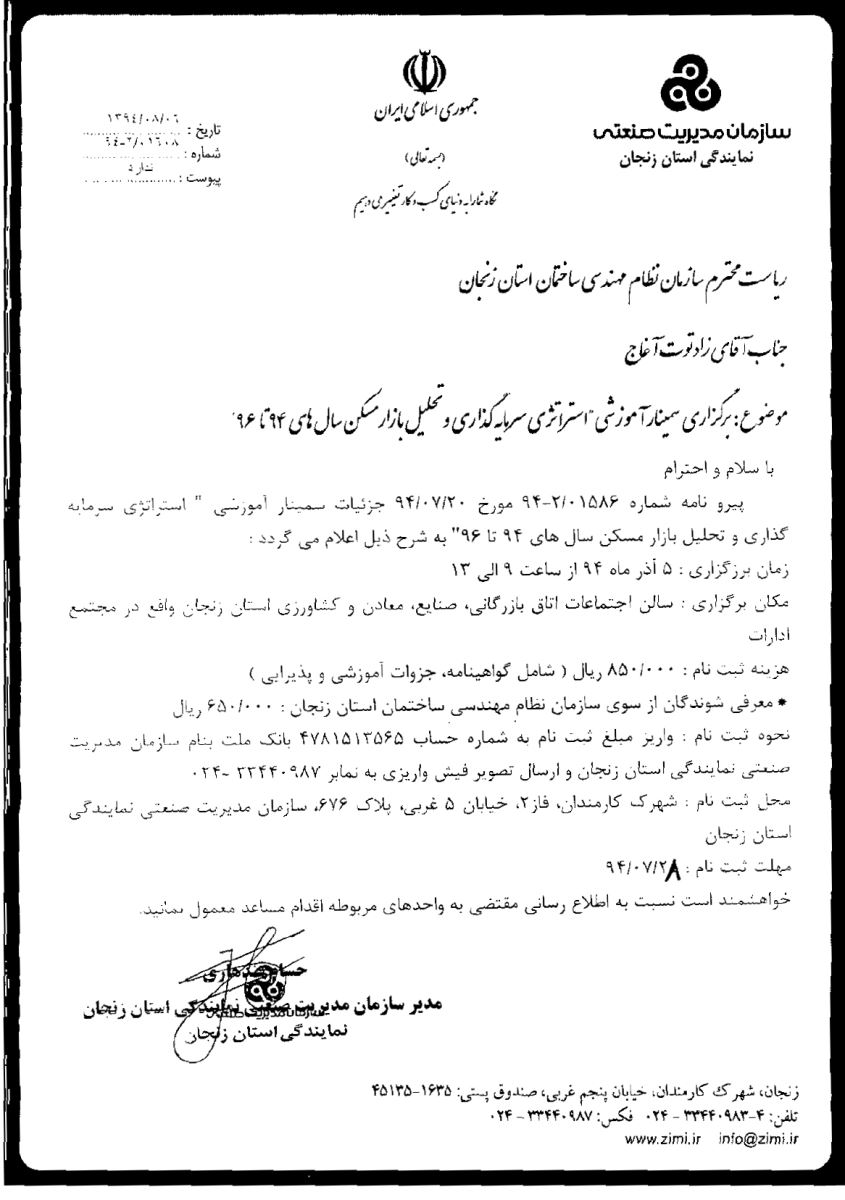 سازمان مدیریت صنعتی
نمایندگی استان زنجان
جمهوری اسلامی ایران
(بسمه تعالی)
نگاه شما را به دنیای کسب و کار تغییر می دهیم
تاریخ : ۱۳۹٤/۰۸/۰٦
شماره : ۹٤-۲/۰۱٦۰۸
پیوست : ندارد
ریاست محترم سازمان نظام مهندسی ساختمان استان زنجان
جناب آقای زاد توت آغاج
موضوع : برگزاری سمینار آموزشی "استراتژی سرمایه گذاری و تحلیل بازار مسکن سال های ۹۴ تا ۹۶"
با سلام و احترام
پیرو نامه شماره ۹۴-۲/۰۱۵۸۶ مورخ ۹۴/۰۷/۲۰ جزئیات سمینار آموزشی " استراتژی سرمایه
گذاری و تحلیل بازار مسکن سال های ۹۴ تا ۹۶" به شرح ذیل اعلام می گردد :
زمان برزگزاری : ۵ آذر ماه ۹۴ از ساعت ۹ الی ۱۳
مکان برگزاری : سالن اجتماعات اتاق بازرگانی، صنایع، معادن و کشاورزی استان زنجان واقع در مجتمع
ادارات
هزینه ثبت نام : ۸۵۰/۰۰۰ ریال ( شامل گواهینامه، جزوات آموزشی و پذیرایی )
* معرفی شوندگان از سوی سازمان نظام مهندسی ساختمان استان زنجان : ۶۵۰/۰۰۰ ریال
نحوه ثبت نام : واریز مبلغ ثبت نام به شماره حساب ۴۷۸۱۵۱۳۵۶۵ بانک ملت بنام سازمان مدیریت
صنعتی نمایندگی استان زنجان و ارسال تصویر فیش واریزی به نمابر ۳۳۴۴۰۹۸۷ -۰۲۴
محل ثبت نام : شهرک کارمندان، فاز۲، خیابان ۵ غربی، پلاک ۶۷۶، سازمان مدیریت صنعتی نمایندگی
استان زنجان
مهلت ثبت نام : ۹۴/۰۷/۲۸
خواهشمند است نسبت به اطلاع رسانی مقتضی به واحدهای مربوطه اقدام مساعد معمول نمائید.
مدیر سازمان مدیریت صنعتی نمایندگی استان زنجان
نمایندگی استان زنجان
زنجان، شهرک کارمندان، خیابان پنجم غربی، صندوق پستی: ۱۶۳۵-۴۵۱۳۵
تلفن: ۴-۳۳۴۴۰۹۸۳ - ۰۲۴ فکس: ۳۳۴۴۰۹۸۷ - ۰۲۴
www.zimi.ir info@zimi.ir